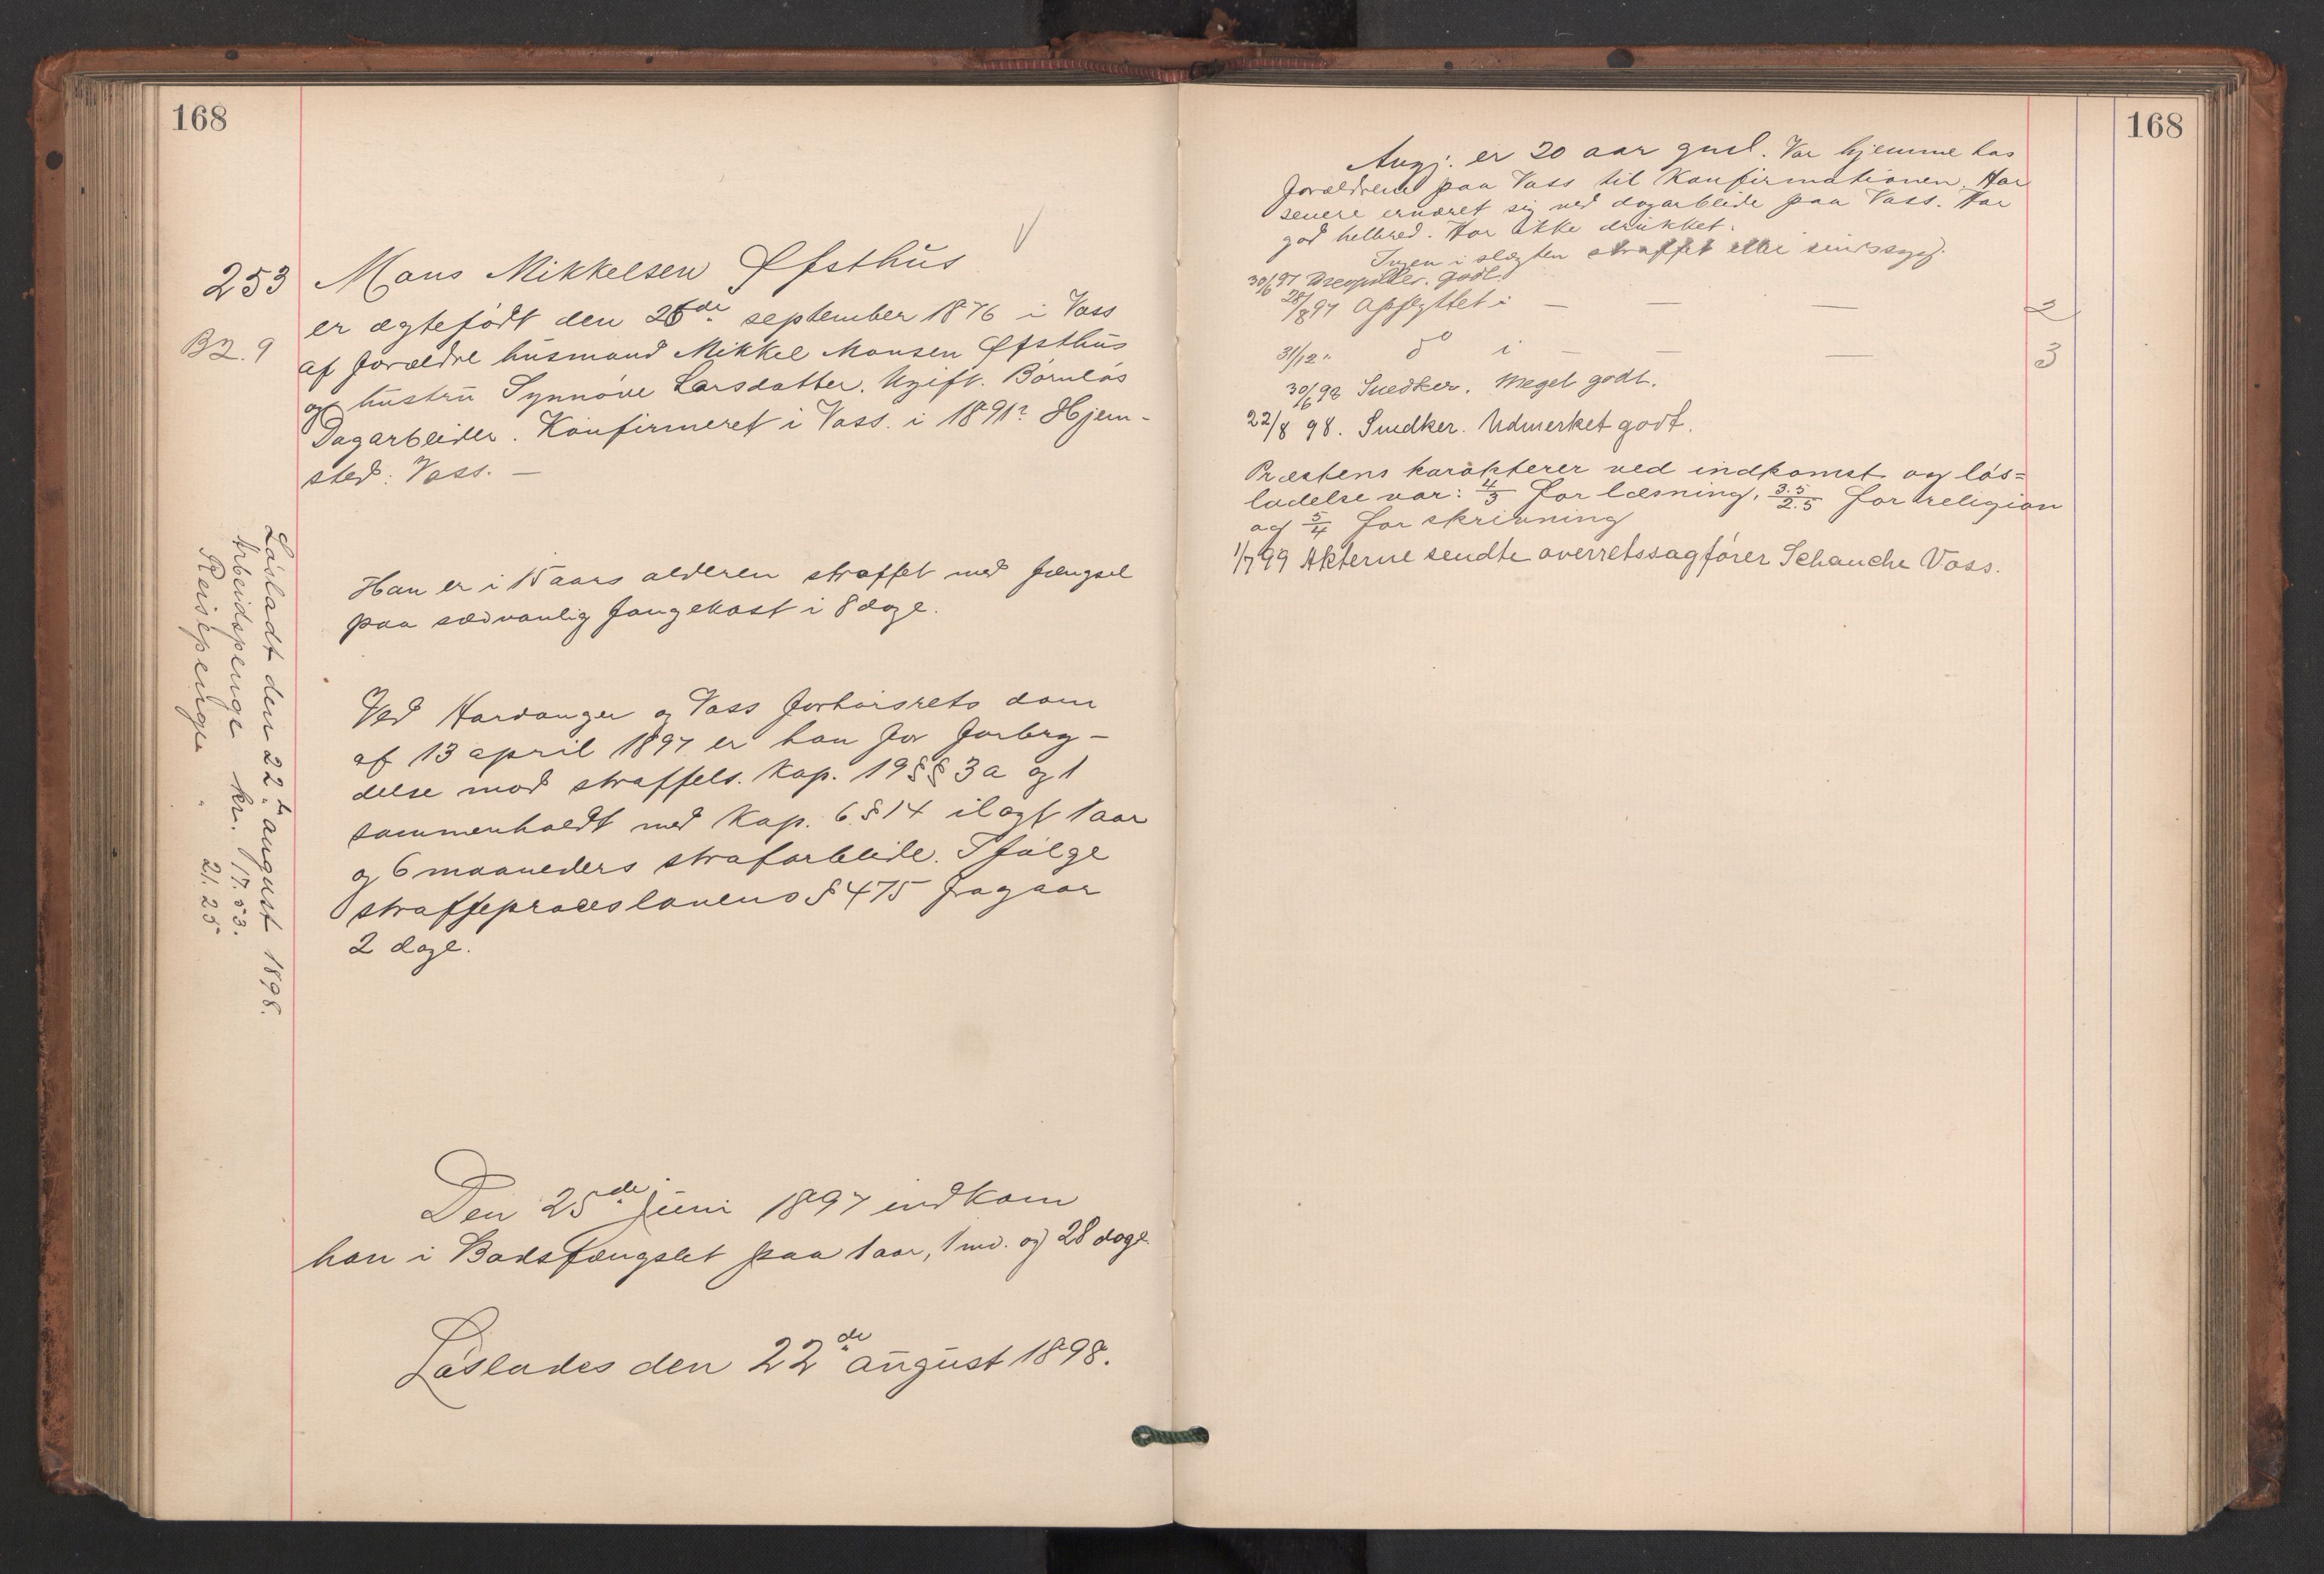 168
253 Mons Mikkelsen Øfsthus
er ægtefødt den 26de september 1876 i Voss
B2. 9
af forældre husmand Mikkel Monsen Øfsthus
og hustru Synnøve Larsdatter. Ugift. Børnløs
Dagarbeider. Konfirmeret i Voss. i 1891? Hjem-
sted: Voss. —
Løsladt den 22de august 1898.
Arbeidspenge kr. 17.53.
Reisepenge " 21.25
Han er i 15 aars alderen straffet med fængsel
paa sædvanlig fangekost i 8 dage.
Ved Hardanger og Voss forhørsrets dom
af 13 april 1897 er han for forbry-
delse mod straffels. Kap. 19 §§ 3 a og 1
sammenholdt med Kap. 6 § 14 ilagt 1 aar
og 6 maaneders strafarbeide. Ifølge
straffeproceslovens § 475 fragaar
2 dage.
Den 25de juni 1897 indkom
han i Bodsfængslet paa 1 aar, 1 md. og 28 dage
Løslades den 22de august 1898.
168
Angj. er 20 aar gml. Var hjemme hos
forældrene paa Voss til Konfirmationen. Har
senere ernæret sig ved dagarbeide paa Voss. Har
god helbred. Har ikke drukket.
Ingen i slægten straffet eller sindssyg.
30/6 97 godt.
28/8 97 Opflyttet i — — — 2
31/12 " do i — — — 3
30/6 98 Snedker. Meget godt.
22/8 98. Snedker. Udmerket godt.
Præstens karakterer ved indkomst og løs=
ladelse var: 4/3 for læsning, 3.5/2.5 for religion
og 5/4 for skrivning
1/7 99 Akterne sendte overretssagfører Schanche Voss.